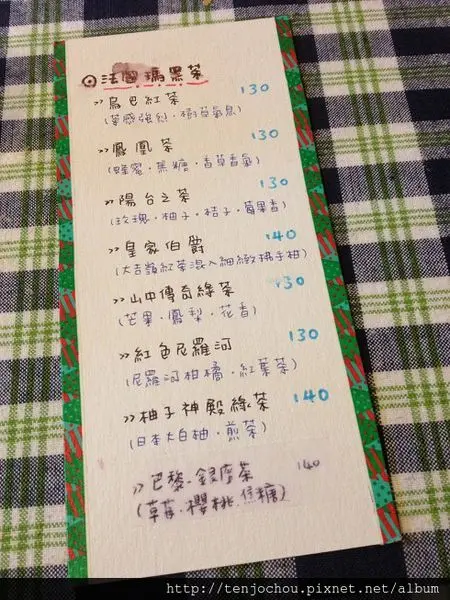 ⊙法國瑪黑茶
»烏巴紅茶 130
(葉感強烈・樹草氣息)
»鳳凰茶 130
(蜂蜜・焦糖・香草香氣)
»陽台之茶 130
(玫瑰・柚子・桔子・莓果香)
»皇家伯爵 140
(大吉嶺紅茶混入細緻橘子柑)
»山中傳奇綠茶 130
(芒果・鳳梨・花香)
»紅色尼羅河 130
(尼羅河柑橘・紅葉茶)
»柚子神殿綠茶 140
(日本大白柚・煎茶)
»巴黎-銀座茶 140
(草莓・櫻桃.焦糖)
http://tenjochou.pixnet.net/album